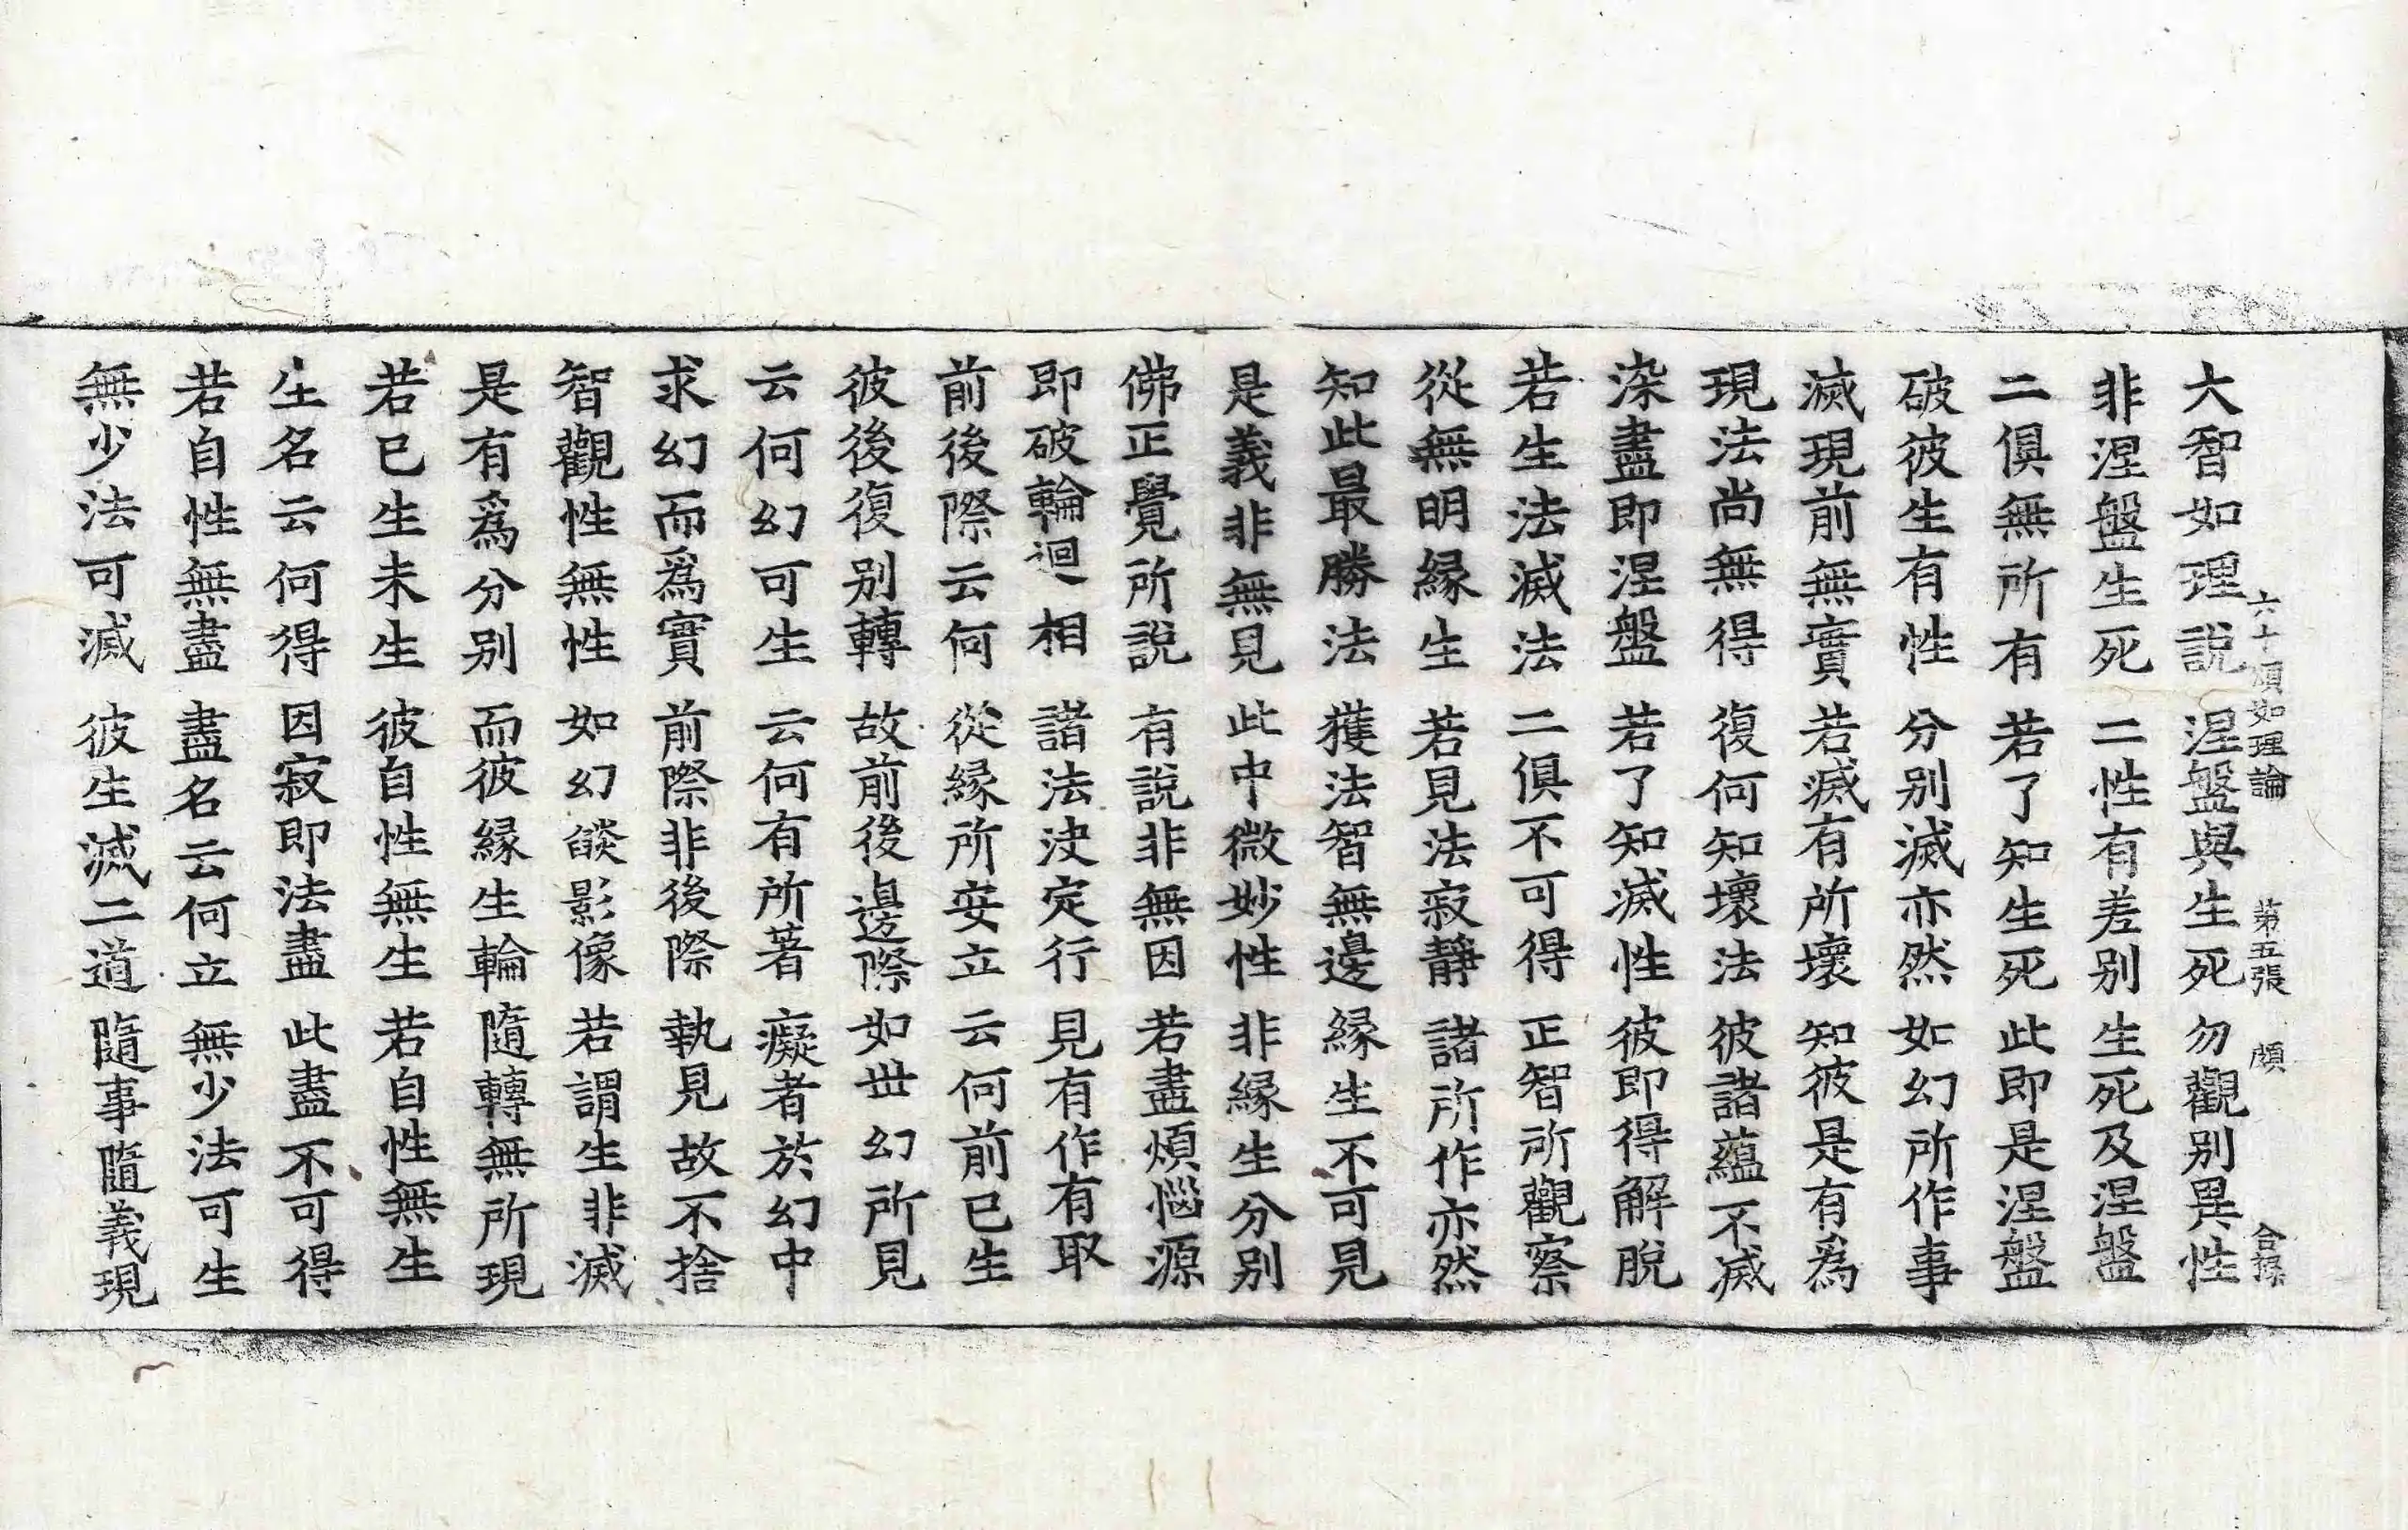 六十頌如理論 第五張 頗 合探
大智如理說 涅盤與生死 勿觀別異性
非涅盤生死 二性有差別 生死及涅盤
二俱無所有 若了知生死 此即是涅盤
破彼生有性 分別滅亦然 如幻所作事
滅現前無實 若滅有所壞 知彼是有為
現法尚無得 復何知壞法 彼諸蘊不滅
染盡即涅盤 若了知滅性 彼即得解脫
若生法滅法 二俱不可得 正智所觀察
從無明緣生 若見法寂靜 諸所作亦然
知此最勝法 獲法智無邊 緣生不可見
是義非無見 此中微妙性 非緣生分別
佛正覺所說 有說非無因 若盡煩惱源
即破輪迴相 諸法決定行 見有作有取
前後際云何 從緣所安立 云何前已生
彼後復別轉 故前後邊際 如世幻所見
云何幻可生 云何有所著 癡者於幻中
求幻而為實 前際非後際 執見故不捨
智觀性無性 如幻燄影像 若謂生非滅
是有為分別 而彼緣生輪 隨轉無所現
若已生未生 彼自性無生 若自性無生
生名云何得 因寂即法盡 此盡不可得
若自性無盡 盡名云何立 無少法可生
無少法可滅 彼生滅二道 隨事隨義現